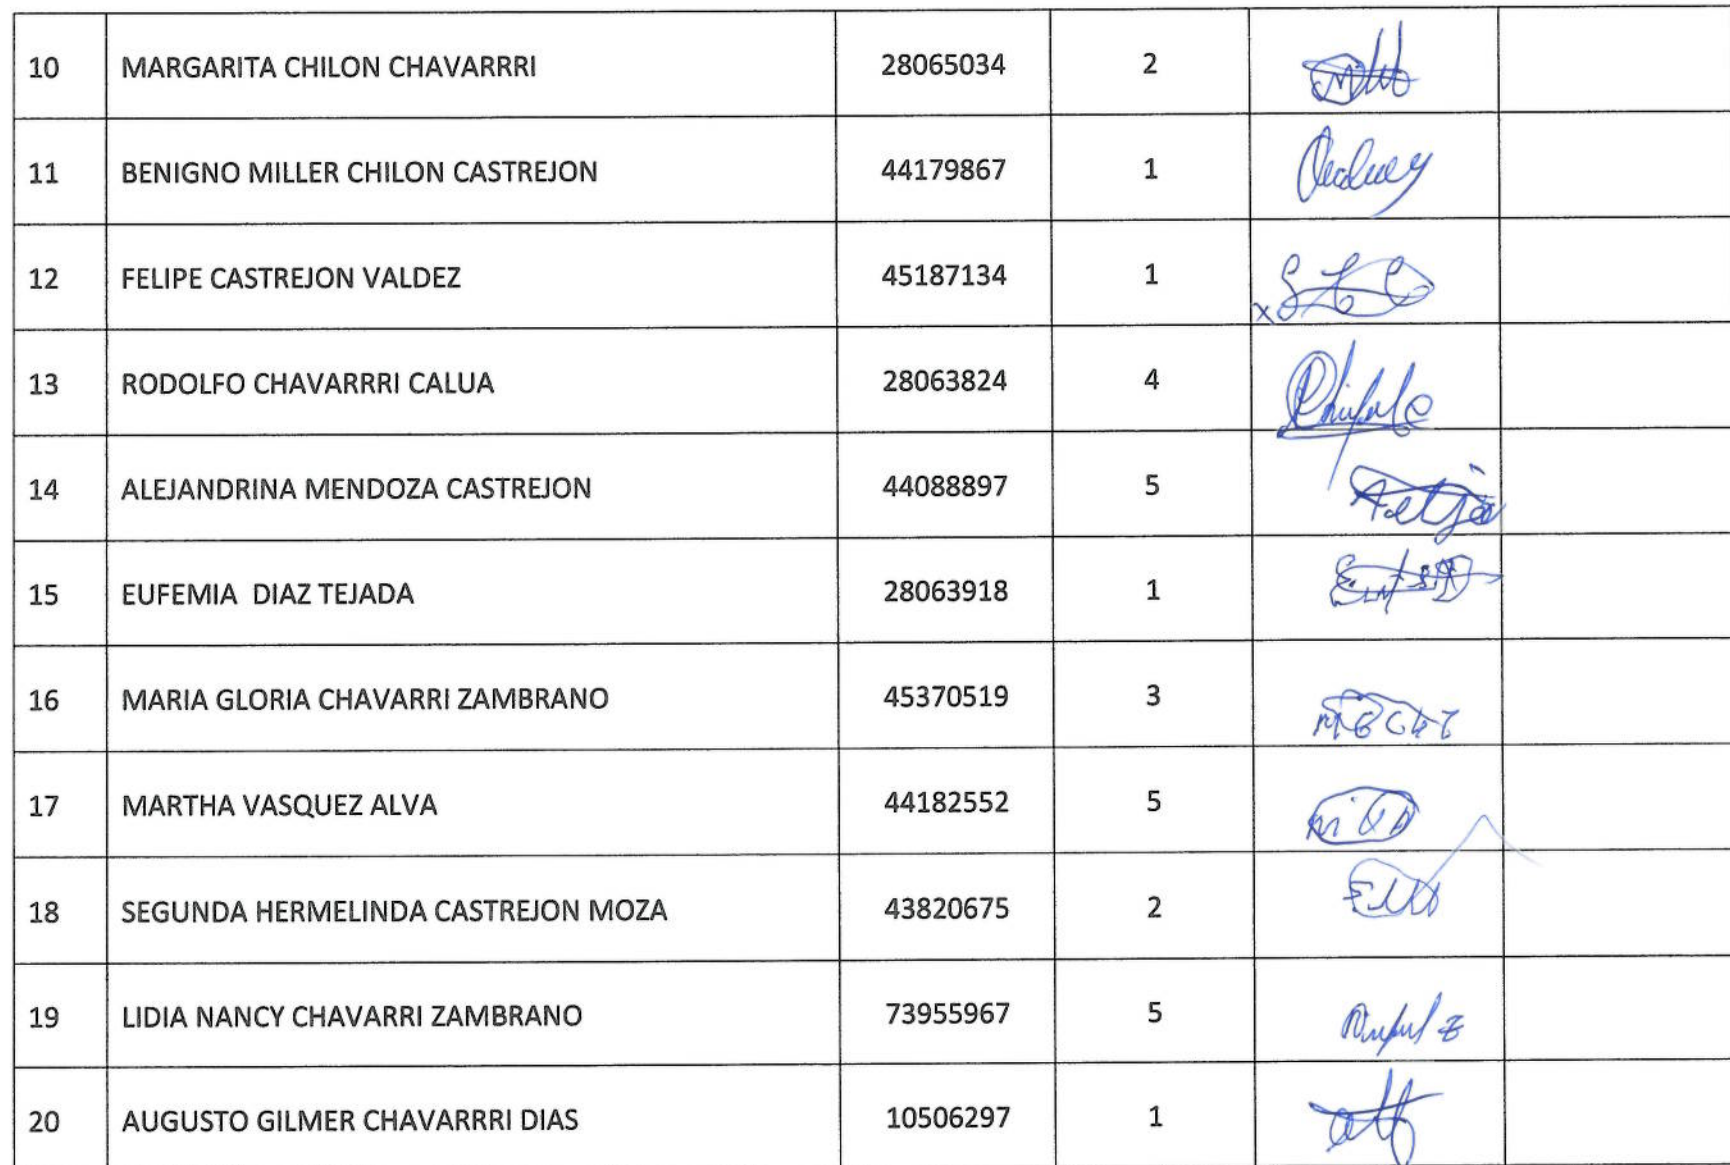 10 MARGARITA CHILON CHAVARRRI 28065034 2
11 BENIGNO MILLER CHILON CASTREJON 44179867 1
12 FELIPE CASTREJON VALDEZ 45187134 1
13 RODOLFO CHAVARRRI CALUA 28063824 4
14 ALEJANDRINA MENDOZA CASTREJON 44088897 5
15 EUFEMIA DIAZ TEJADA 28063918 1
16 MARIA GLORIA CHAVARRI ZAMBRANO 45370519 3
17 MARTHA VASQUEZ ALVA 44182552 5
18 SEGUNDA HERMELINDA CASTREJON MOZA 43820675 2
19 LIDIA NANCY CHAVARRI ZAMBRANO 73955967 5
20 AUGUSTO GILMER CHAVARRRI DIAS 10506297 1